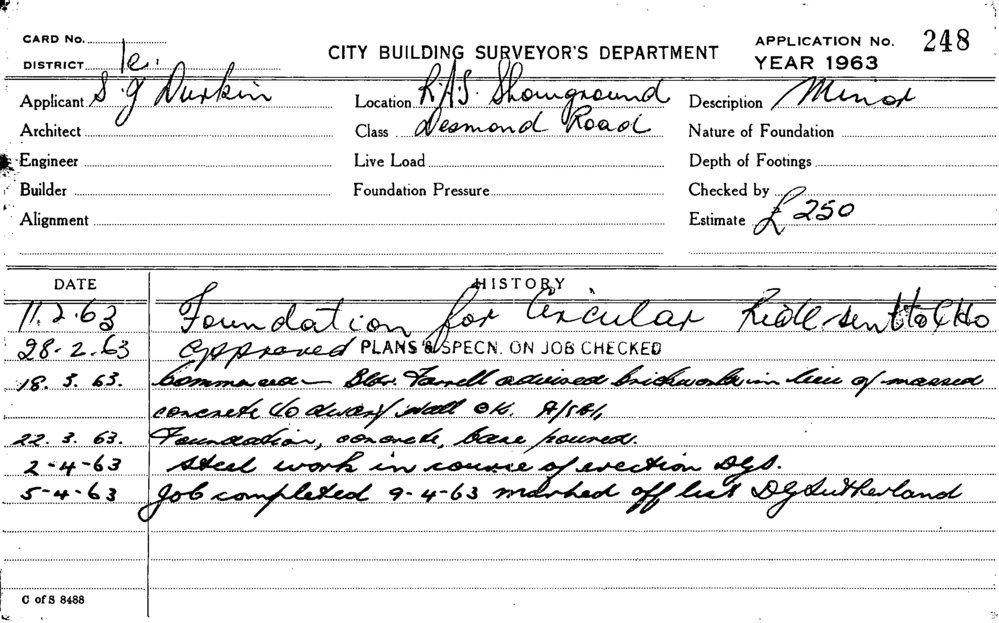 CARD No.
DISTRICT 1e.
CITY BUILDING SURVEYOR'S DEPARTMENT
APPLICATION No. 248
YEAR 1963
Applicant S. J. Durkin
Location R.A.S. Showground
Description Minor
Architect
Class Desmond Road
Nature of Foundation
Engineer
Live Load
Depth of Footings
Builder
Foundation Pressure
Checked by
Alignment
Estimate £ 250
DATE HISTORY
11.2.63 Foundation for Circular Ride sent to
28.2.63 approved PLANS & SPECN. ON JOB CHECKED
18.3.63. Commenced - Bldr. Farrell advised brickwork in lieu of massed
concrete to dwarf wall OK.
22.3.63. Foundation, concrete, base poured.
2-4-63 Steel work in course of erection DGS.
5-4-63 Job completed 9-4-63 marked off list DG Sutherland
C of S 8488